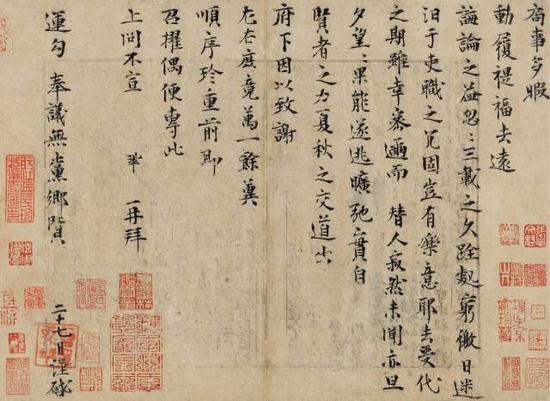 局事多暇
動履禔福去遠
誨論之益忽忽三載之久跧處窮徼日迷
汩于吏職之冗固豈有樂意耶去受代
之期雖幸密邇而替人寂然未聞亦旦
夕望望果能遂逃曠弛實自
賢者之力夏秋之交道出
府下因以致謝
左右庶竟萬一餘冀
順序珍重前即
召擢偶便專此
上問不宣 鞏再拜
運勾奉議無黨鄉賢
二十七日謹啟